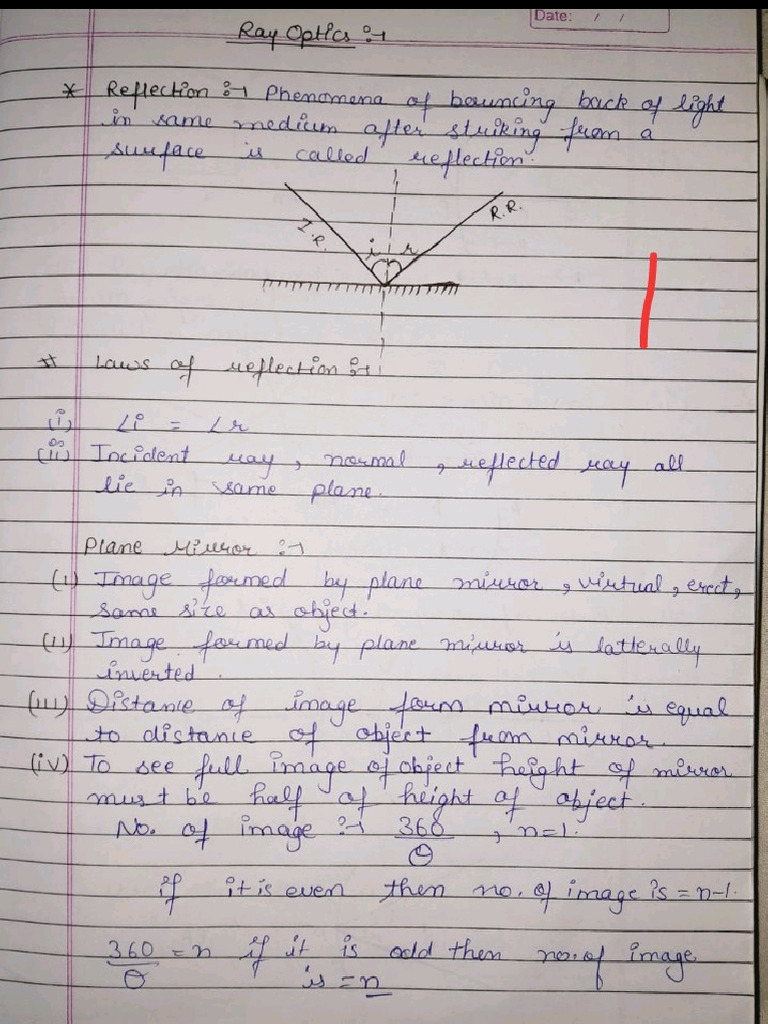 Date: / /
Ray Optics :-
* Reflection :- Phenomena of bouncing back of light
in same medium after striking from a
surface is called reflection.
I.R. i r R.R.
* Laws of reflection :-
(i) ∠i = ∠r
(ii) Incident ray, normal, reflected ray all
lie in same plane.
Plane Mirror :-
(i) Image formed by plane mirror, virtual, erect,
same size as object.
(ii) Image formed by plane mirror is latterally
inverted.
(iii) Distance of image form mirror is equal
to distance of object from mirror.
(iv) To see full image of object height of mirror
must be half of height of object.
No. of image :- 360/θ, n=1.
if it is even then no. of image is = n-1.
360/θ = n if it is odd then no. of image
is = n